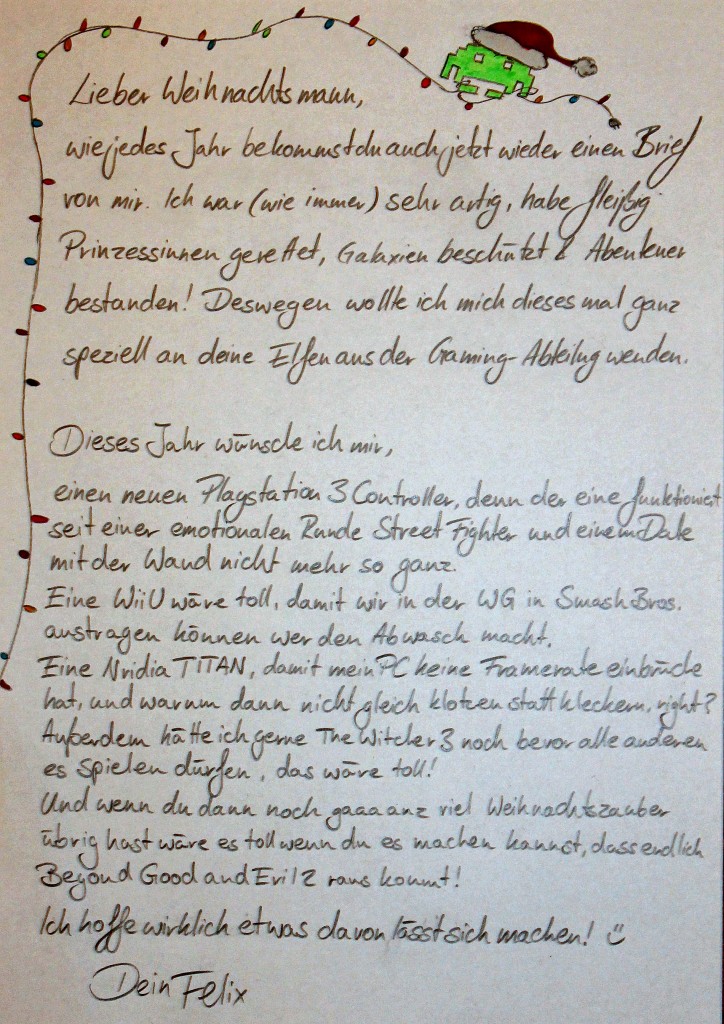 Lieber Weihnachtsmann,
wie jedes Jahr bekommst du auch jetzt wieder einen Brief
von mir. Ich war (wie immer) sehr artig, habe fleißig
Prinzessinnen gerettet, Galaxien beschützt & Abenteuer
bestanden! Deswegen wollte ich mich dieses mal ganz
speziell an deine Elfen aus der Gaming-Abteilug wenden.
Dieses Jahr wünsche ich mir,
einen neuen Playstation 3 Controller, denn der eine funktioniert
seit einer emotionalen Runde Street Fighter und einem Date
mit der Wand nicht mehr so ganz.
Eine WiiU wäre toll, damit wir in der WG in Smash Bros.
austragen können wer den Abwasch macht.
Eine Nvidia TITAN, damit mein PC keine Framerate einbrüche
hat, und warum dann nicht gleich klotzen statt kleckern, right?
Außerdem hätte ich gerne The Witcher 3 noch bevor alle anderen
es spielen dürfen, das wäre toll!
Und wenn du dann noch gaaaanz viel Weihnachtszauber
übrig hast wäre es toll wenn du es machen kannst, dass endlich
Beyond Good and Evil 2 raus kommt!
Ich hoffe wirklich etwas davon lässt sich machen! :)
Dein Felix